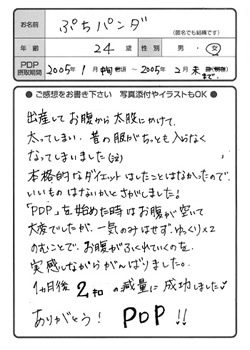 お名前 ぷちパンダ
(匿名でも結構です)
年齢 24歳 性別 男・女
PDP摂取期間 2005年1月中旬~2005年2月末まで。
●ご感想をお書き下さい 写真添付やイラストもOK●
出産してお腹から太股にかけて、
太ってしまい、昔の服がちっとも入らなく
なってしまいました(泣)
本格的なダイエットはしたことはなかったので、
いいものはないかとさがしました。
「PDP」を始めた時はお腹が空いて
大変でしたが、一気のみはせず、ゆっくり×2
のむことで、お腹がふくれていくのを
実感しながらがんばりました。
1ヵ月後2キロの減量に成功しました
ありがとう! PDP!!